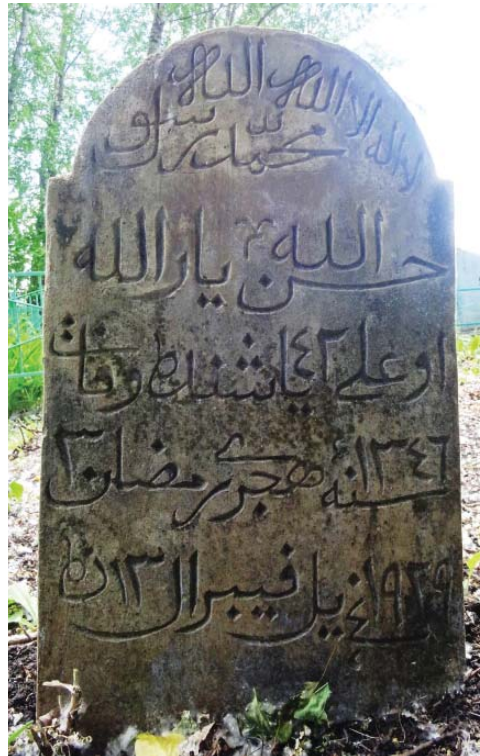 لا اله الا الله الله
محمد رسول
الله حسن يار الله
اوغلے ٤٢ ياشنده وفات
١٣٤٦ سنه هجرے رمضان ٣
١٩٢٩ نچے يل فيبرال ١٣ ده